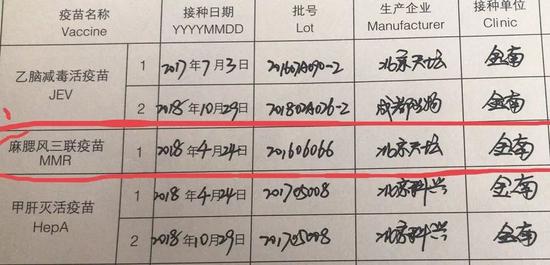 疫苗名称 接种日期 批号 生产企业 接种单位
Vaccine YYYYMMDD Lot Manufacturer Clinic
乙脑减毒活疫苗
JEV
1 2017年7月3日 201602A090-2 北京天坛 金南
2 2018年10月29日 201802A026-2 成都 金南
麻腮风三联疫苗
MMR
1 2018年4月24日 201606066 北京天坛 金南
甲肝灭活疫苗
HepA
1 2018年4月24日 201705008 北京科兴 金南
2 2018年10月29日 201705008 北京科兴 金南